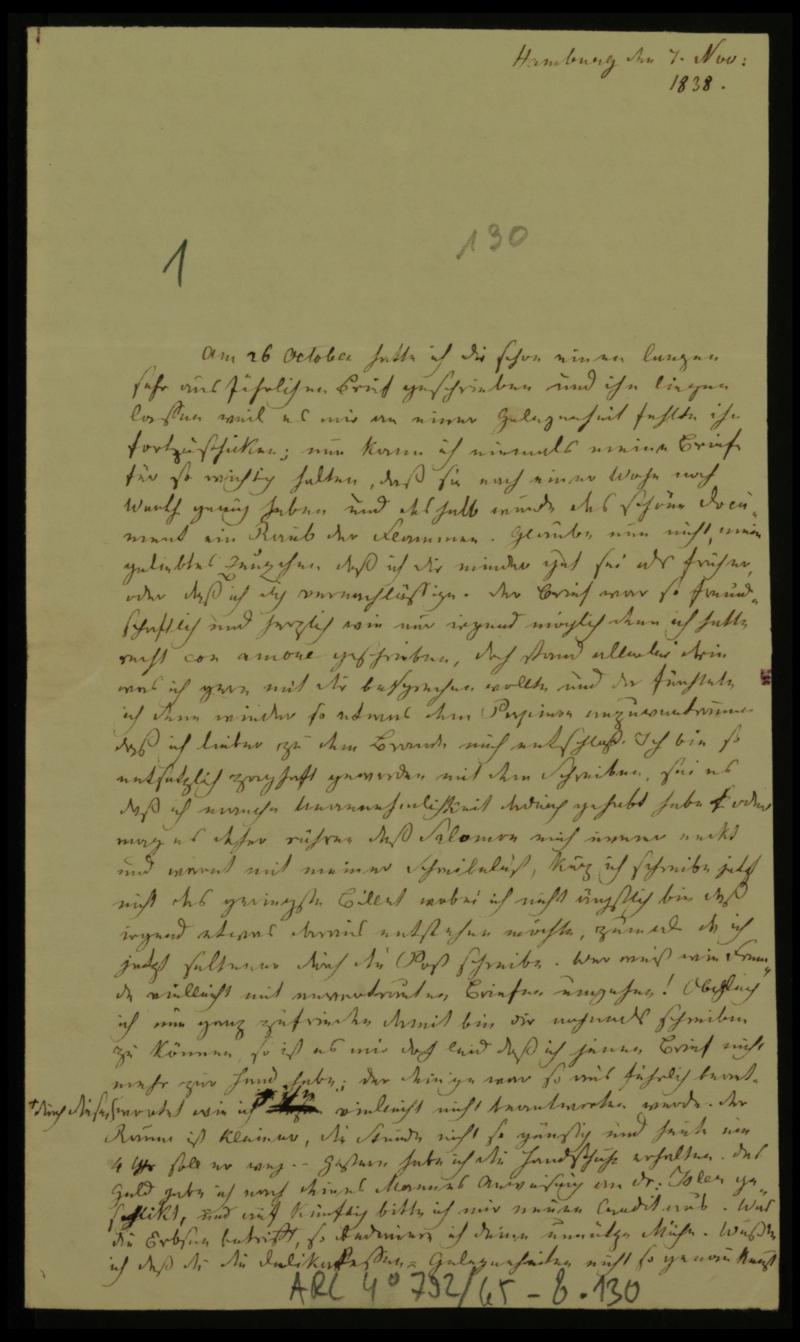 Hamburg den 7. Nov:
1838.
130
1
Am 26 October hatte ich dir schon einen langen
sehr ausführlichen Brief geschrieben und ihn liegen
lassen weil es mir an einer Gelegenheit fehlte ihn
fortzuschicken; nun kann ich niemals meine Briefe
für so wichtig halten, daß sie nach einer Woche noch
Werth genug haben und deshalb wurde das schöne Docu„
ment ein Raub der Flammen. Glaube nun nicht, mein
geliebtes daß ich dir minder gut sei als früher,
oder daß ich dich vernachlässige. Der Brief war so freund„
schaftlich und herzlich wie nur irgend möglich denn ich hatte
recht con amore geschrieben, doch stand allerlei drin
was ich gern mit dir besprechen wollte und da fürchtete
ich denn wieder so etwas dem Papiere anzuvertrauen
daß ich lieber zu dem Brande mich entschloß. Ich bin so
entsetzlich zaghaft geworden mit dem Schreiben, sei es
daß ich manche Unannehmlichkeit dadurch gehabt habe oder
mag es daher rühren daß Salomon mich immer neckt
und warnt mit meiner Schreibelust, kurz ich schreibe jetzt
nicht das geringste Billet wobei ich nicht ängstlich bin daß
irgend etwas daraus entstehen möchte, zumal da ich
jetzt seltener durch die Post schreibe. Wer weiß wie Frem„
de vielleicht mit anvertrauten Briefen umgehen! Obgleich
ich nun ganz zufrieden damit bin dir nochmals schreiben
zu können, so ist es mir doch leid daß ich jenen Brief nicht
mehr zur Hand habe; der deinige war so ausführlich beant„
wortet wie ich vielleicht nicht beantworten werde. Der
Raum ist kleiner, die Stunde nicht so günstig und heute um
4 Uhr soll er weg -- Gestern habe ich die Handschuhe erhalten. Das
Geld habe ich nach deines Mannes Anweisung an Dr. Isler ge„
schickt, und auf künftig bitte ich mir neuen Credit aus. Was
die Erbsen betrifft, so bedauere ich deine unnütze Mühe. Wußte
ich daß du die Delikatessen= Gelegenheiten nicht so genau kennst
ARC 4° 792/65 - 8.130